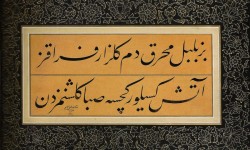 بز بلبل محرق دم گلزار فراقز
آتش كسيلور كچسه صبا گلشنمزدن